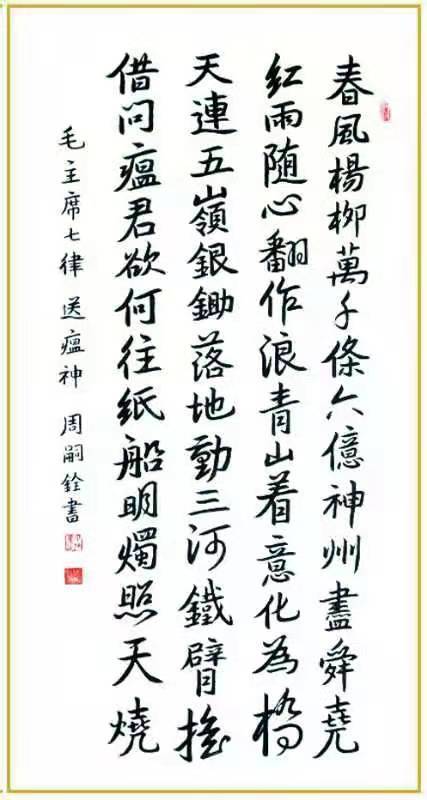 春風楊柳萬千條六億神州盡舜堯
紅雨隨心翻作浪青山着意化為橋
天連五嶺銀鋤落地動三河鐵臂搖
借問瘟君欲何往紙船明燭照天燒
毛主席七律 送瘟神 周嗣銓書